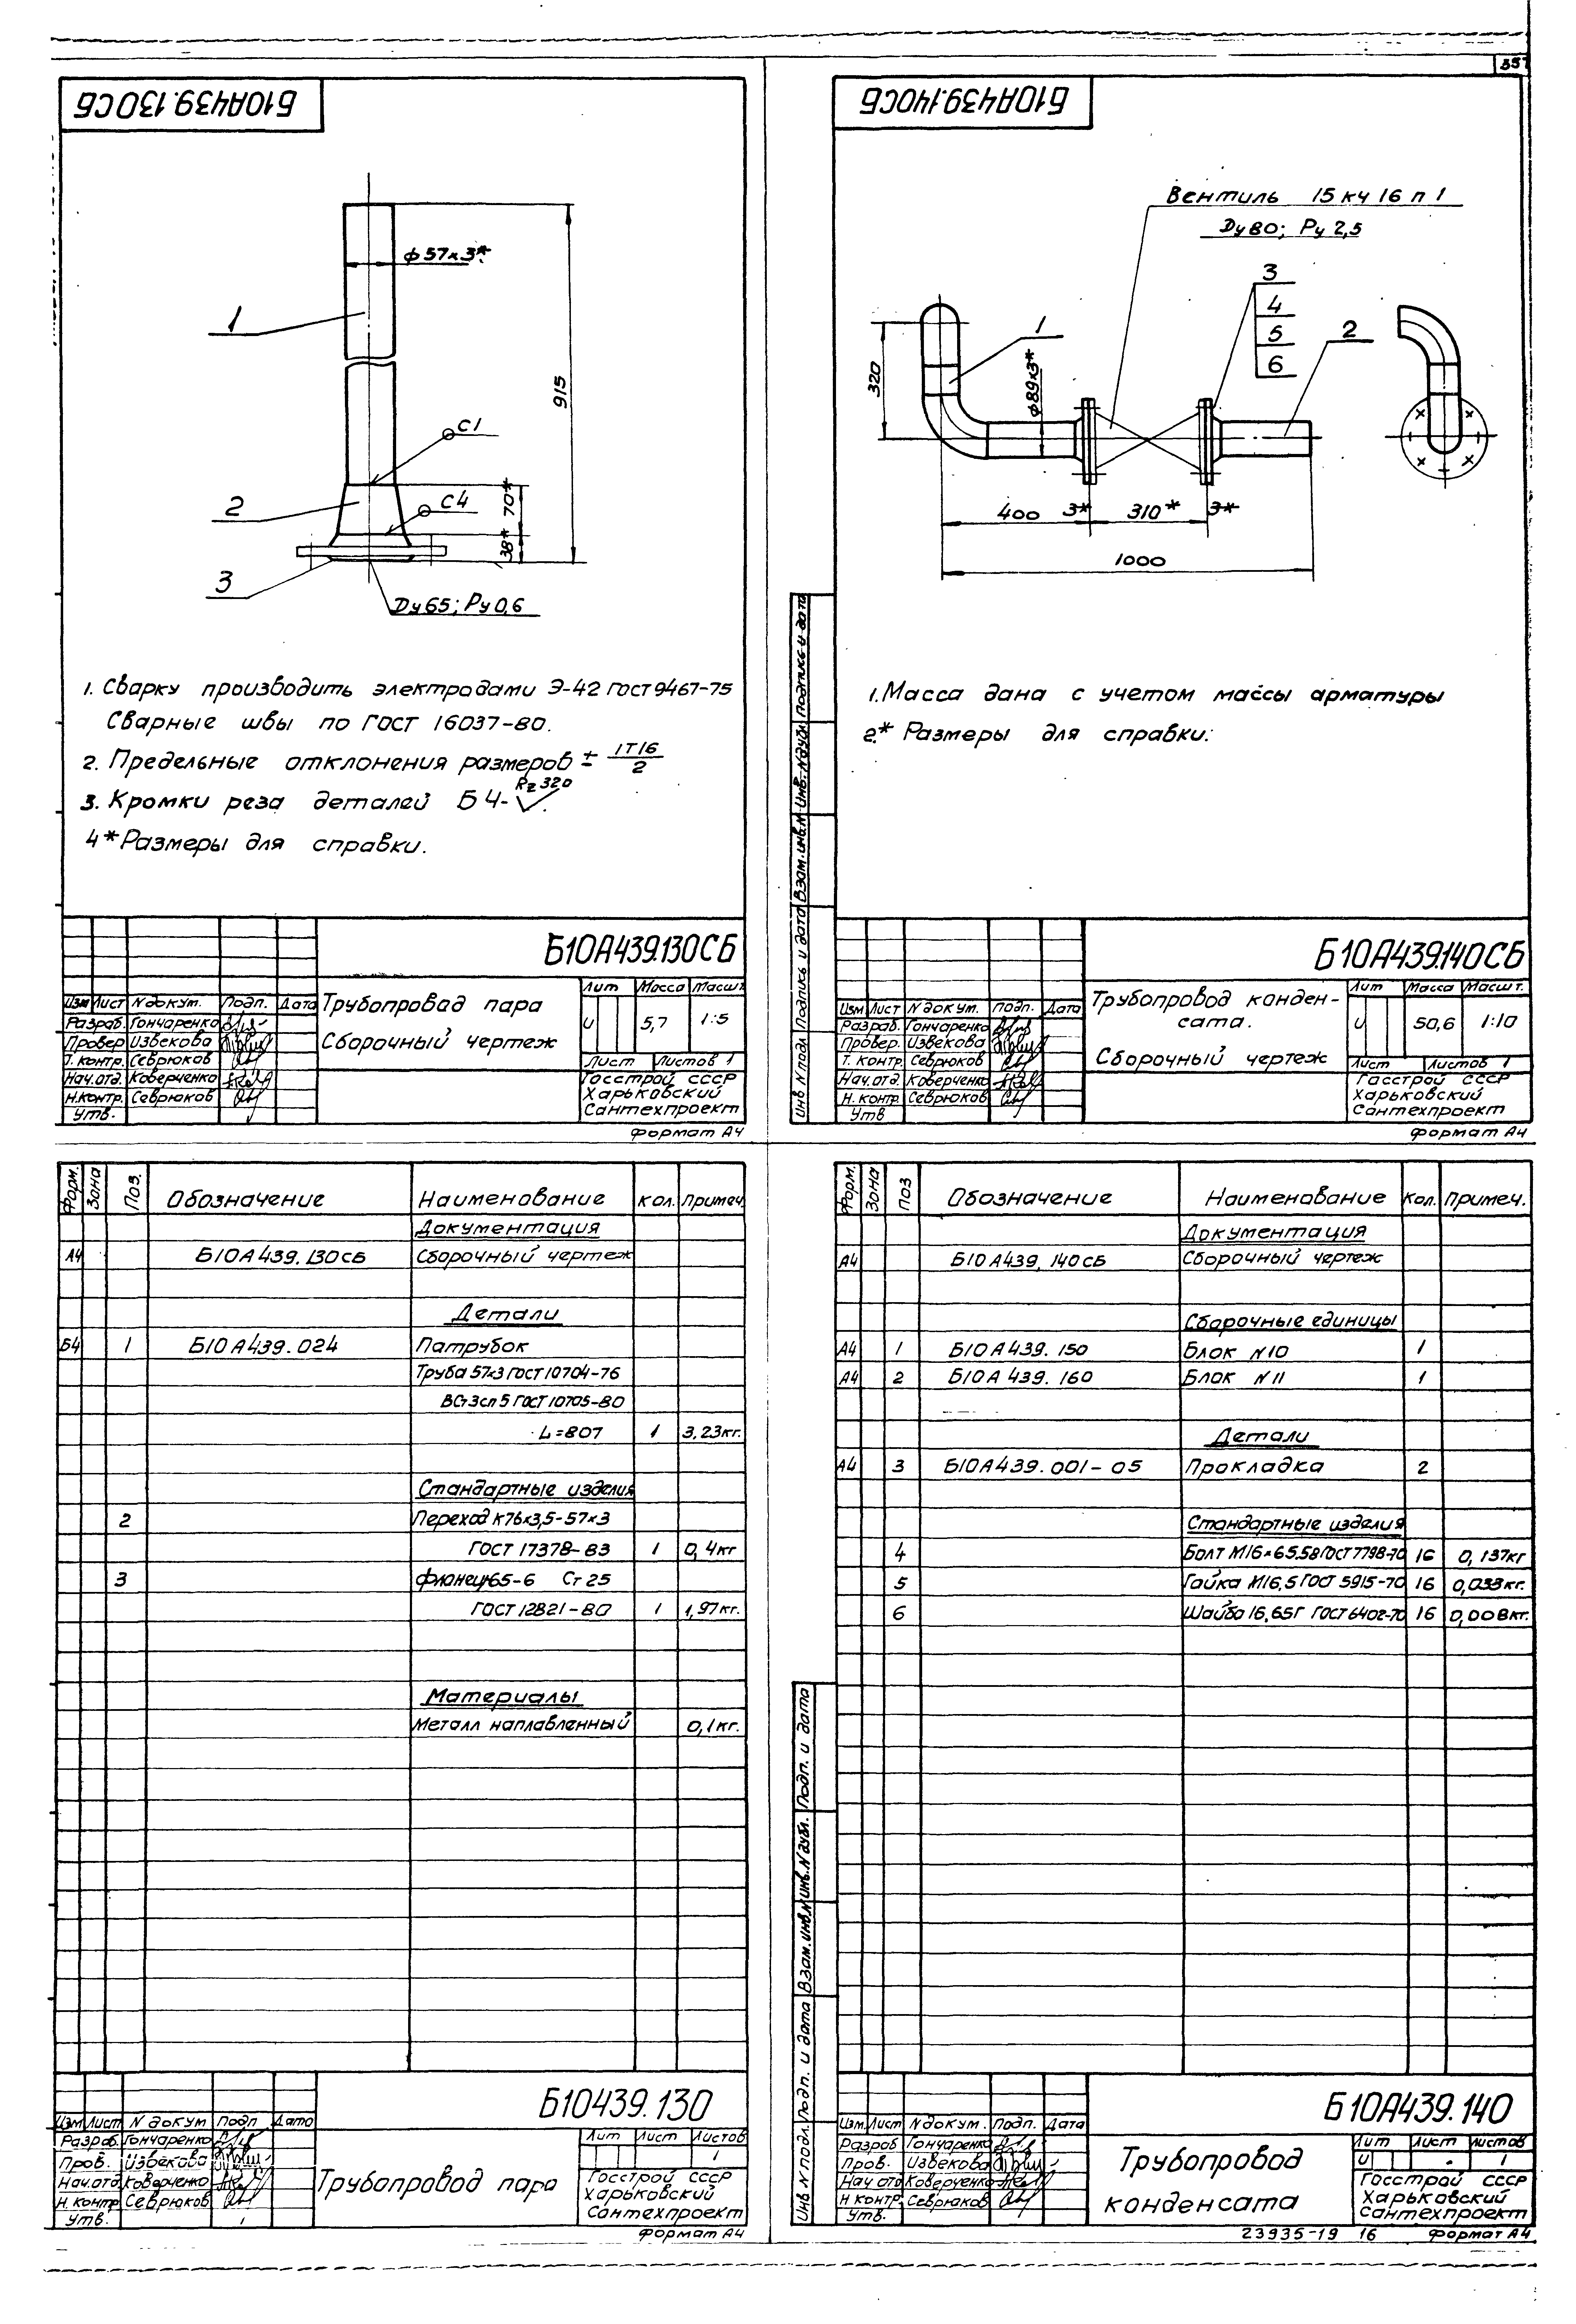 357
Б10А439.130СБ
ϕ57х3*
1
915
С1
2
С4
70*
38*
3
Ду65; Ру0,6
1. Сварку производить электродами Э-42 ГОСТ 9467-75
Сварные швы по ГОСТ 16037-80.
2. Предельные отклонения размеров ± IT16/2
3. Кромки реза деталей Б4- Rz 320
4* Размеры для справки.
Б10А439.130СБ
Изм Лист N докум. Подп. Дата
Разраб. Гончаренко
Провер Извекова
Т. контр. Севрюков
Нач. отд. Коверченко
Н.контр. Севрюков
Утв.
Трубопровад пара
Сборочный чертеж
Лит Масса Масшт.
И 5,7 1:5
Лист Листов 1
Госстрой СССР
Харьковский
Сантехпроект
Формат А4
Б10А439.140СБ
Вентиль 15 кч 16 п 1
Ду80; Ру 2,5
3
4
5
6
1
2
320
ϕ89х3*
400 3* 310* 3*
1000
1. Масса дана с учетом массы арматуры
2.* Размеры для справки.
Инв N подл Подпись и дата Взам. инв. N Инв. N дубл Подпись и дата
Б10А439.140СБ
Изм Лист N докум. Подп. Дата
Разраб. Гончаренко
Провер. Извекова
Т. контр. Севрюков
Нач. отд. Коверченко
Н. контр. Севрюков
Утв
Трубопровод конден-
сата.
Сборочный чертеж
Лит Масса Масшт.
И 50,6 1:10
Лист Листов 1
Госстрой СССР
Харьковский
Сантехпроект
Формат А4
Форм. Зона Поз. Обозначение Наименование Кол. Примеч.
Документация
А4 Б10А439.130СБ Сборочный чертеж
Детали
Б4 1 Б10А439.024 Патрубок
Труба 57х3 ГОСТ 10704-76
ВСт3сп5 ГОСТ 10705-80
L=807 1 3,23кг.
Стандартные изделия
2 Переход К76х3,5-57х3
ГОСТ 17378-83 1 0,4кг
3 Фланец 65-6 Ст 25
ГОСТ 12821-80 1 1,97кг.
Материалы
Металл наплавленный 0,1кг.
Б10439.130
Изм Лист N докум Подп Дата
Разраб. Гончаренко
Пров. Извекова
Нач. отд. Коверченко
Н. контр Севрюков
Утв.
Трубопровод пара
Лит Лист Листов
1
Госстрой СССР
Харьковский
Сантехпроект
Формат А4
Форм. Зона Поз Обозначение Наименование Кол. Примеч.
Документация
А4 Б10А439.140СБ Сборочный чертеж
Сборочные единицы
А4 1 Б10А439.150 Блок N10 1
А4 2 Б10А439.160 Блок N11 1
Детали
А4 3 Б10А439.001-05 Прокладка 2
Стандартные изделия
4 Болт М16х65.58 ГОСТ 7798-70 16 0,137кг
5 Гайка М16,5 ГОСТ 5915-70 16 0,033кг.
6 Шайба 16,65Г ГОСТ 6402-70 16 0,008кг.
Инв N подл. Подп. и дата Взам. инв. N Инв. N дубл. Подп. и дата
Б10А439.140
Изм. Лист N докум. Подп. Дата
Разраб Гончаренко
Пров. Извекова
Нач отд Коверченко
Н контр. Севрюков
Утв.
Трубопровод
конденсата
Лит Лист Листов
И 1
Госстрой СССР
Харьковский
Сантехпроект
23935-19 16 Формат А4